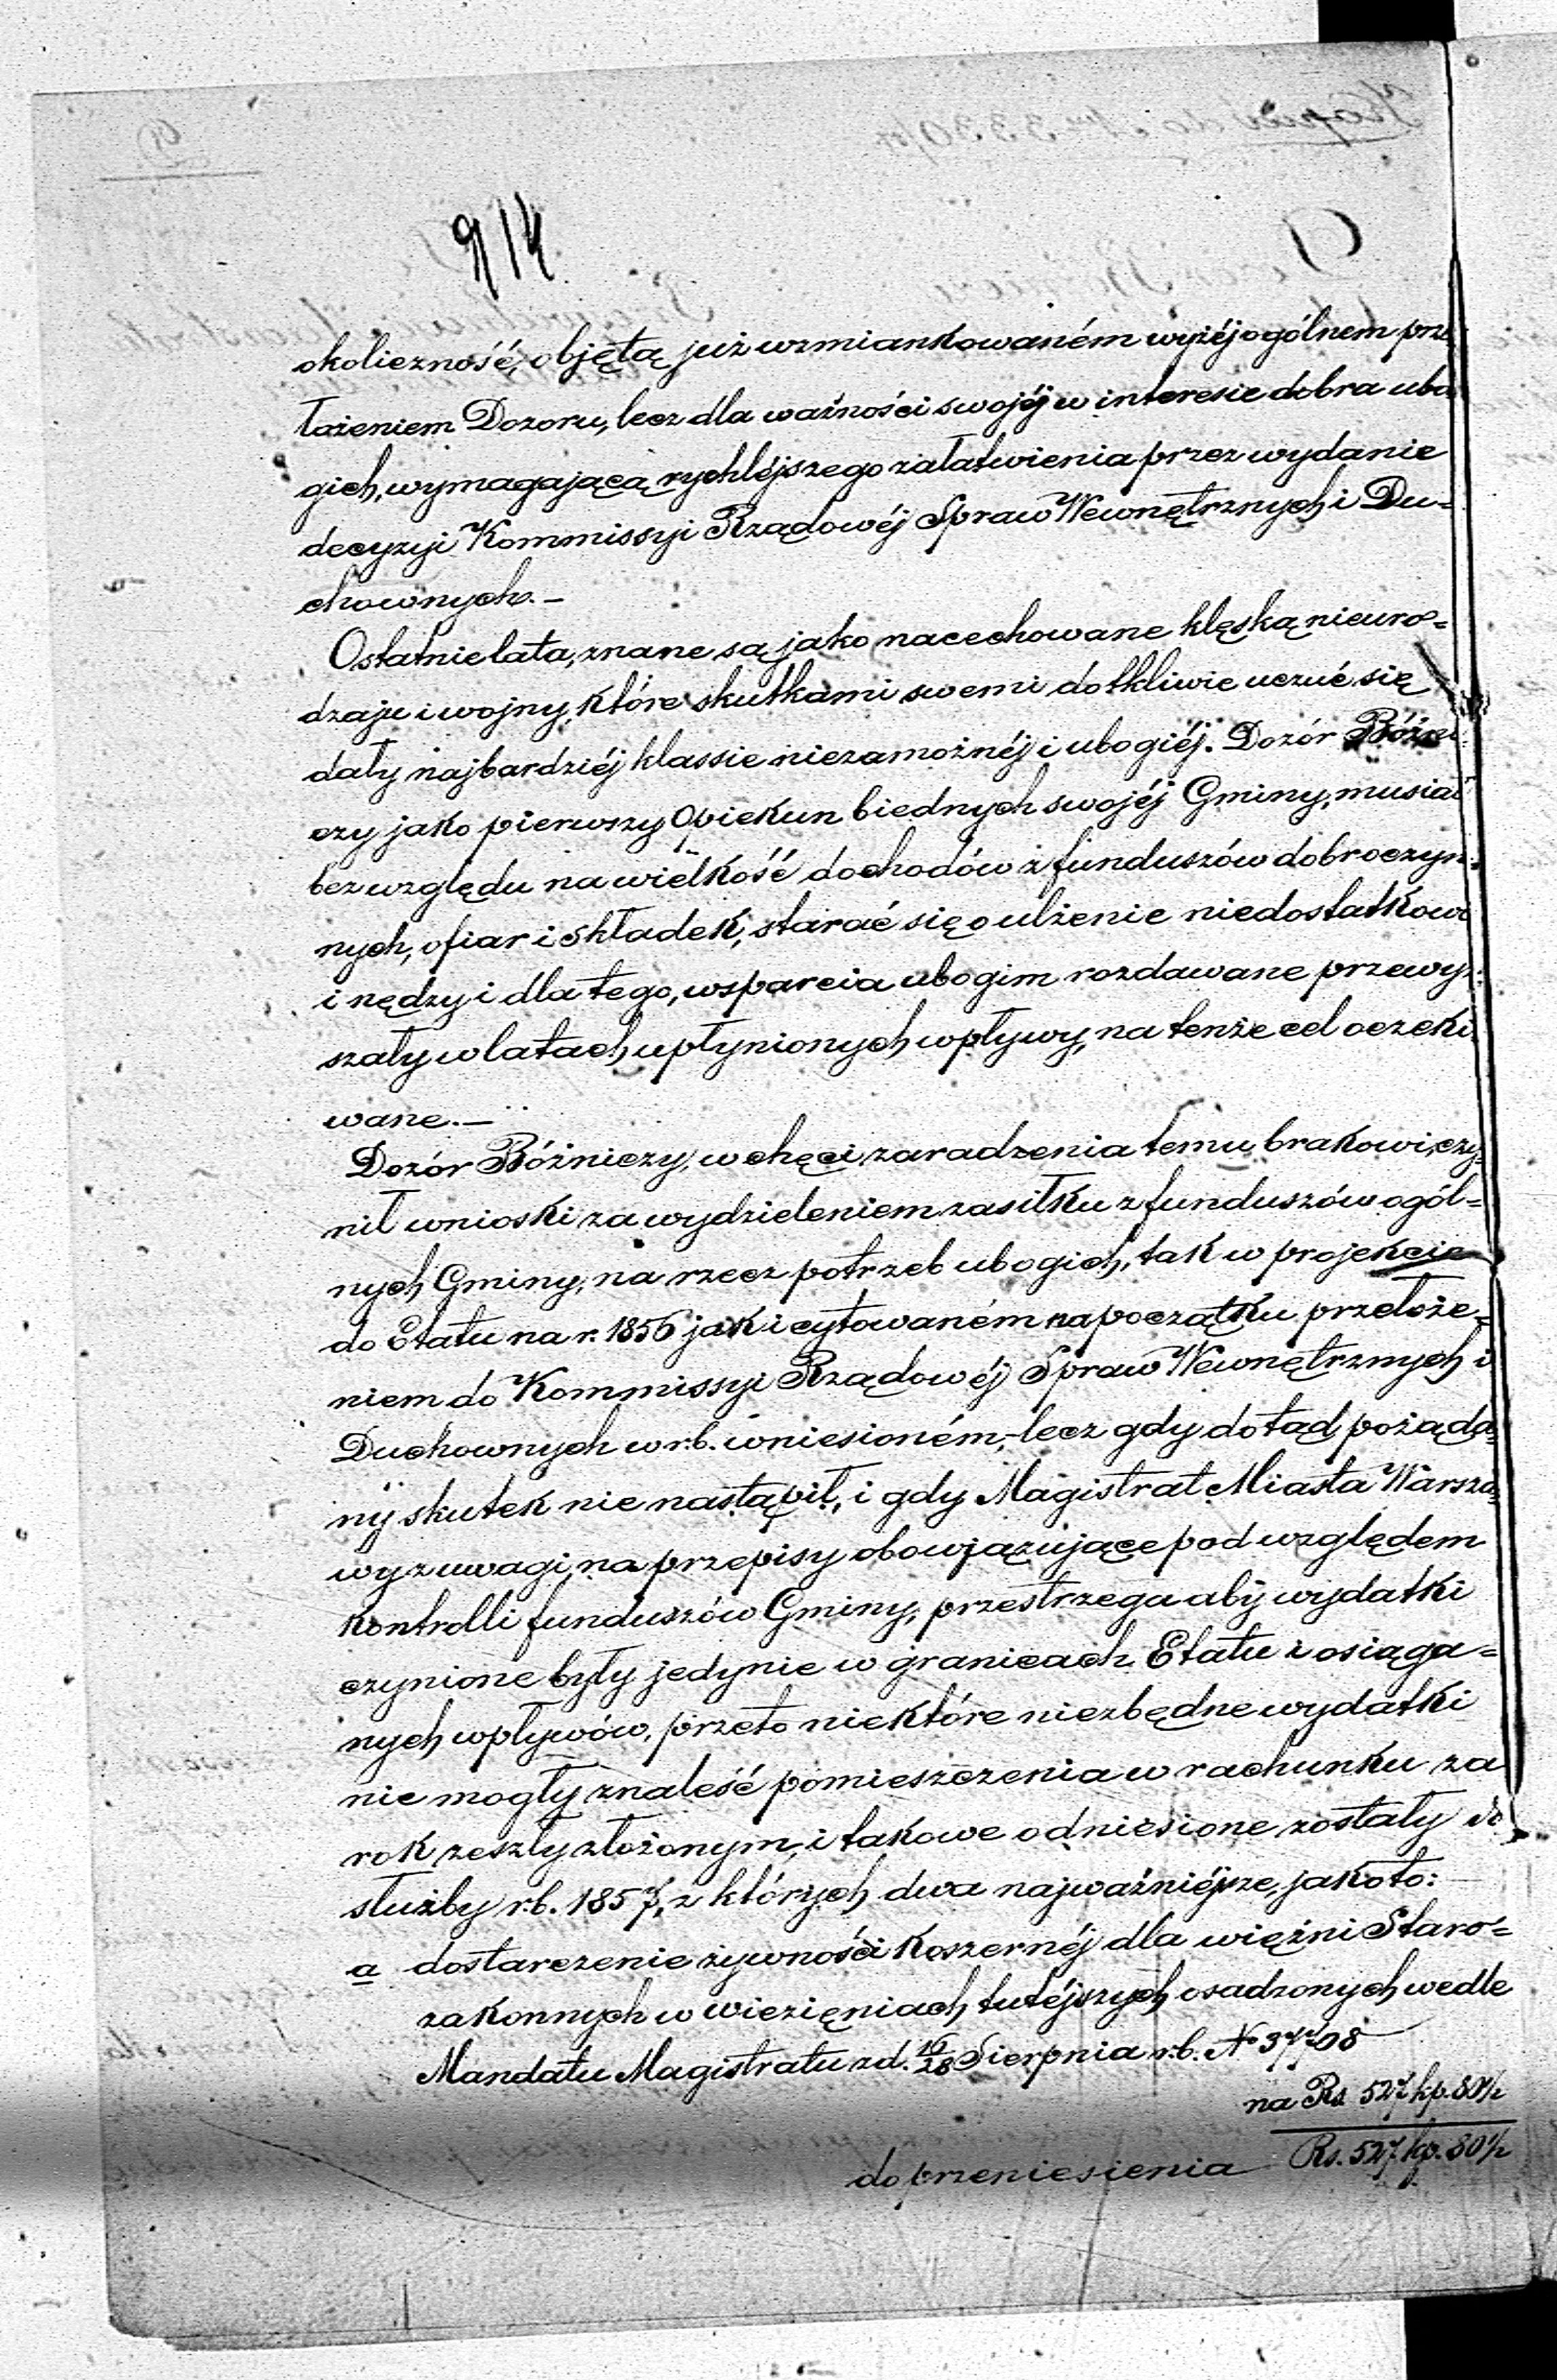 914
okoliczność, objętą już wzmiankowaném wyżéj ogólnem prze
łożeniem Dozoru, lecz dla ważności swojéj w interesie dobra ubo
gich, wymagającą rychléjszego załatwienia przez wydanie
decyzyi Kommissyi Rządowéj Spraw Wewnętrznych i Du-
chownych.—
Ostatnie lata, znane są jako nacechowane klęską nieuro=
dzaju i wojny, które skutkami swemi dotkliwie uczuć się
dały najbardziéj klassie niezamożnéj i ubogiéj. Dozór Bóżni
czy jako pierwszy Opiekun biednych swojéj Gminy, musiał
bez względu na wielkość dochodów z funduszów dobroczyn=
nych, ofiar i składek, starać się o ulżenie niedostatkowi
i nędzy i dla tego, wsparcia ubogim rozdawane przewyż=
szały w latach upłynionych wpływy, na tenże cel oczeki
wane.—
Dozór Bóżniczy, w chęci zaradzenia temu brakowi, czy=
nił wnioski za wydzieleniem zasiłku z funduszów ogól=
nych Gminy, na rzecz potrzeb ubogich, tak w projekcie
do Etatu na r. 1856 jak i cytowaném na początku przełoże=
niem do Kommissyi Rządowéj Spraw Wewnętrznych i
Duchownych w r.b. wniesioném,- lecz gdy dotąd pożąda=
ny skutek nie nastąpił, i gdy Magistrat Miasta Warsza=
wy z uwagi na przepisy obowiązujące pod względem
kontrolli funduszów Gminy, przestrzega aby wydatki
czynione były jedynie w granicach Etatu i osiąga=
nych wpływów, przeto niektóre niezbędne wydatki
nie mogły znaleść pomieszczenia w rachunku za
rok zeszły złożonym, i takowe odniesione zostały do
służby r.b. 1857, z których dwa najważniéjsze, jakoto:
a dostarczenie żywności koszernéj dla więźni Staro=
zakonnych w więzieniach tutéjszych osadzonych wedle
Mandatu Magistratu z d. 16/28 Sierpnia r.b. No 37708
na Rs. 527 kp. 80½
do przeniesienia Rs. 527 kp. 80½